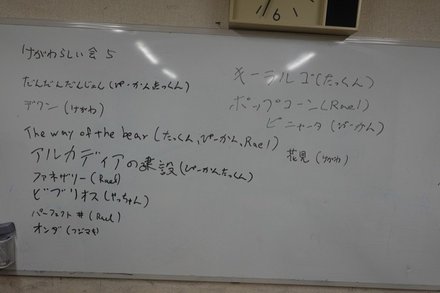 けがわらしい会 5
だんだんだんじょん(ぴーかんたっくん)
デウン(けがわ)
The way of the bear(たっくん、ぴーかん、Rael)
アルカディアの建設(ぴーかんたっくん)
ファネザリー(Rael)
ビブリオス(けっちゃん)
パーフェクト#(Rael)
オンダ(フジマキ)
キーラルゴ(たっくん)
ポップコーン(Rael)
ピニャータ(ぴーかん)
花見(けがわ)